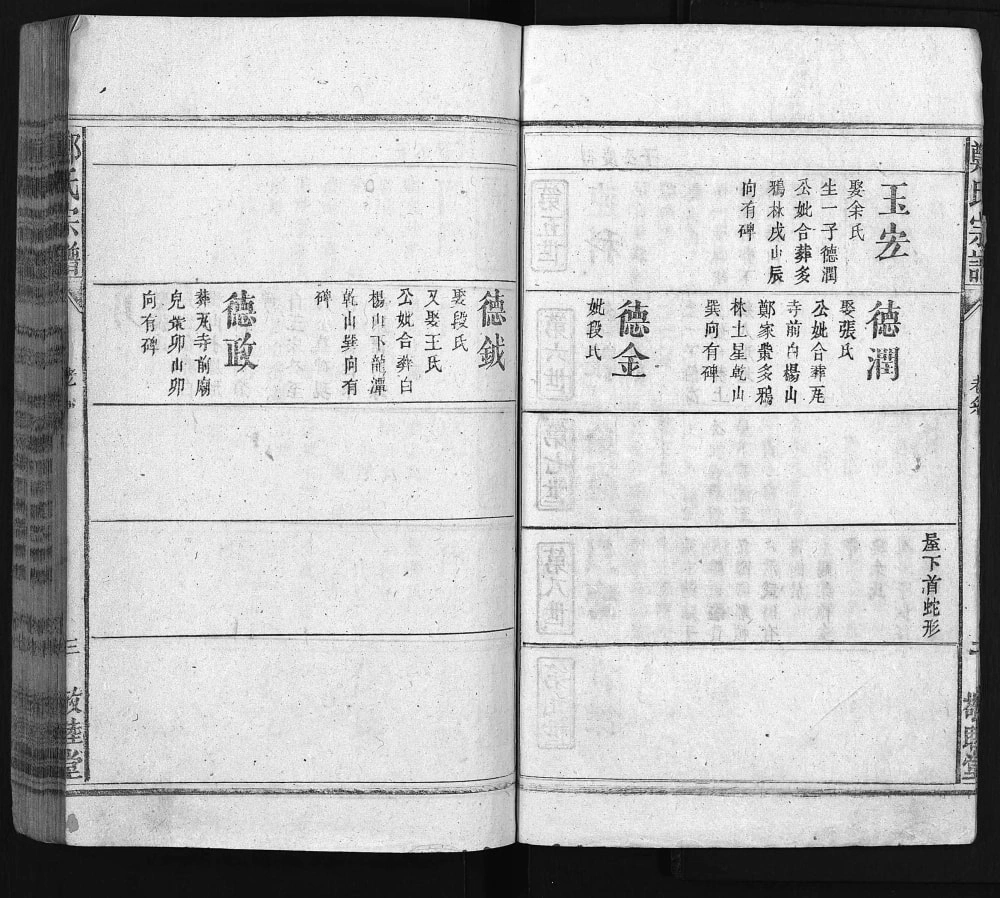 鄭氏宗譜
敬睦堂
玉宏
娶余氏
生一子德潤
公妣合葬多
鴉林戌山辰
向有碑
德潤
娶張氏
公妣合葬尾
寺前白楊山
鄭家䉼多鴉
林土星乾山
巽向有碑
德金
妣段氏
屋下首蛇形
德鉞
娶段氏
又娶王氏
公妣合葬白
楊山下龍潭
乾山巽向有
碑
德政
葬尾寺前廟
兒業卯山卯
向有碑
鄭氏宗譜
三
敬睦堂